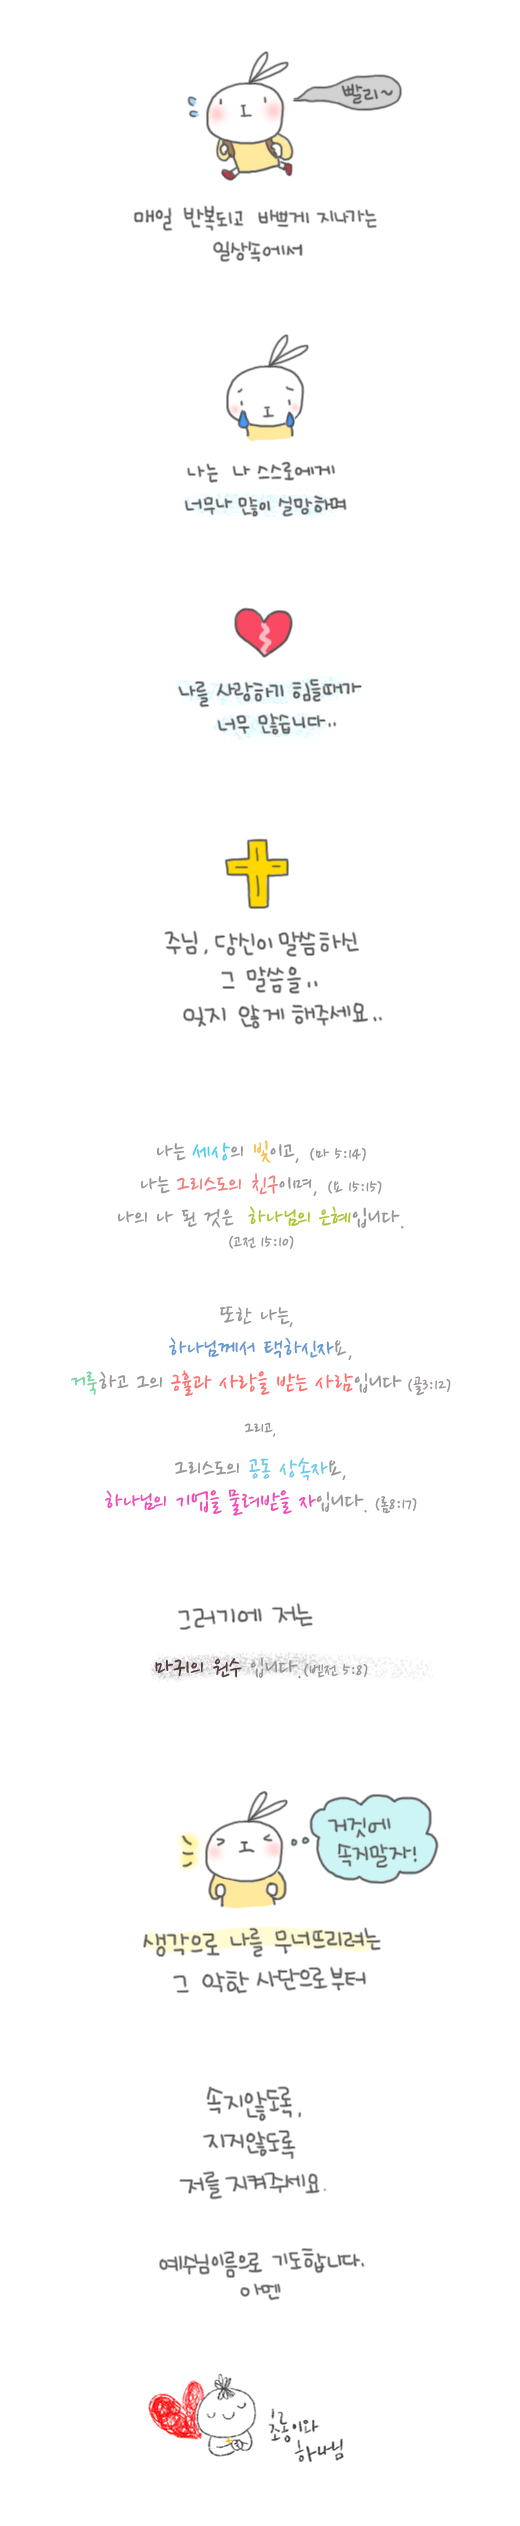 빨리~
매일 반복되고 바쁘게 지나가는
일상속에서
나는 나 스스로에게
너무나 많이 실망하며
나를 사랑하기 힘들때가
너무 많습니다..
주님, 당신이 말씀하신
그 말씀을..
잊지 않게 해주세요..
나는 세상의 빛이고, (마 5:14)
나는 그리스도의 친구이며, (요 15:15)
나의 나 된 것은 하나님의 은혜입니다.
(고전 15:10)
또한 나는,
하나님께서 택하신자요,
거룩하고 그의 긍휼과 사랑을 받는 사람입니다 (골3:12)
그리고,
그리스도의 공동 상속자요,
하나님의 기업을 물려받을 자입니다. (롬8:17)
그러기에 저는
마귀의 원수 입니다.(벧전 5:8)
거짓에
속지말자!
생각으로 나를 무너뜨리려는
그 악한 사단으로부터
속지않도록,
지지않도록
저를 지켜주세요.
예수님이름으로 기도합니다.
아멘
초롱이와
하나님